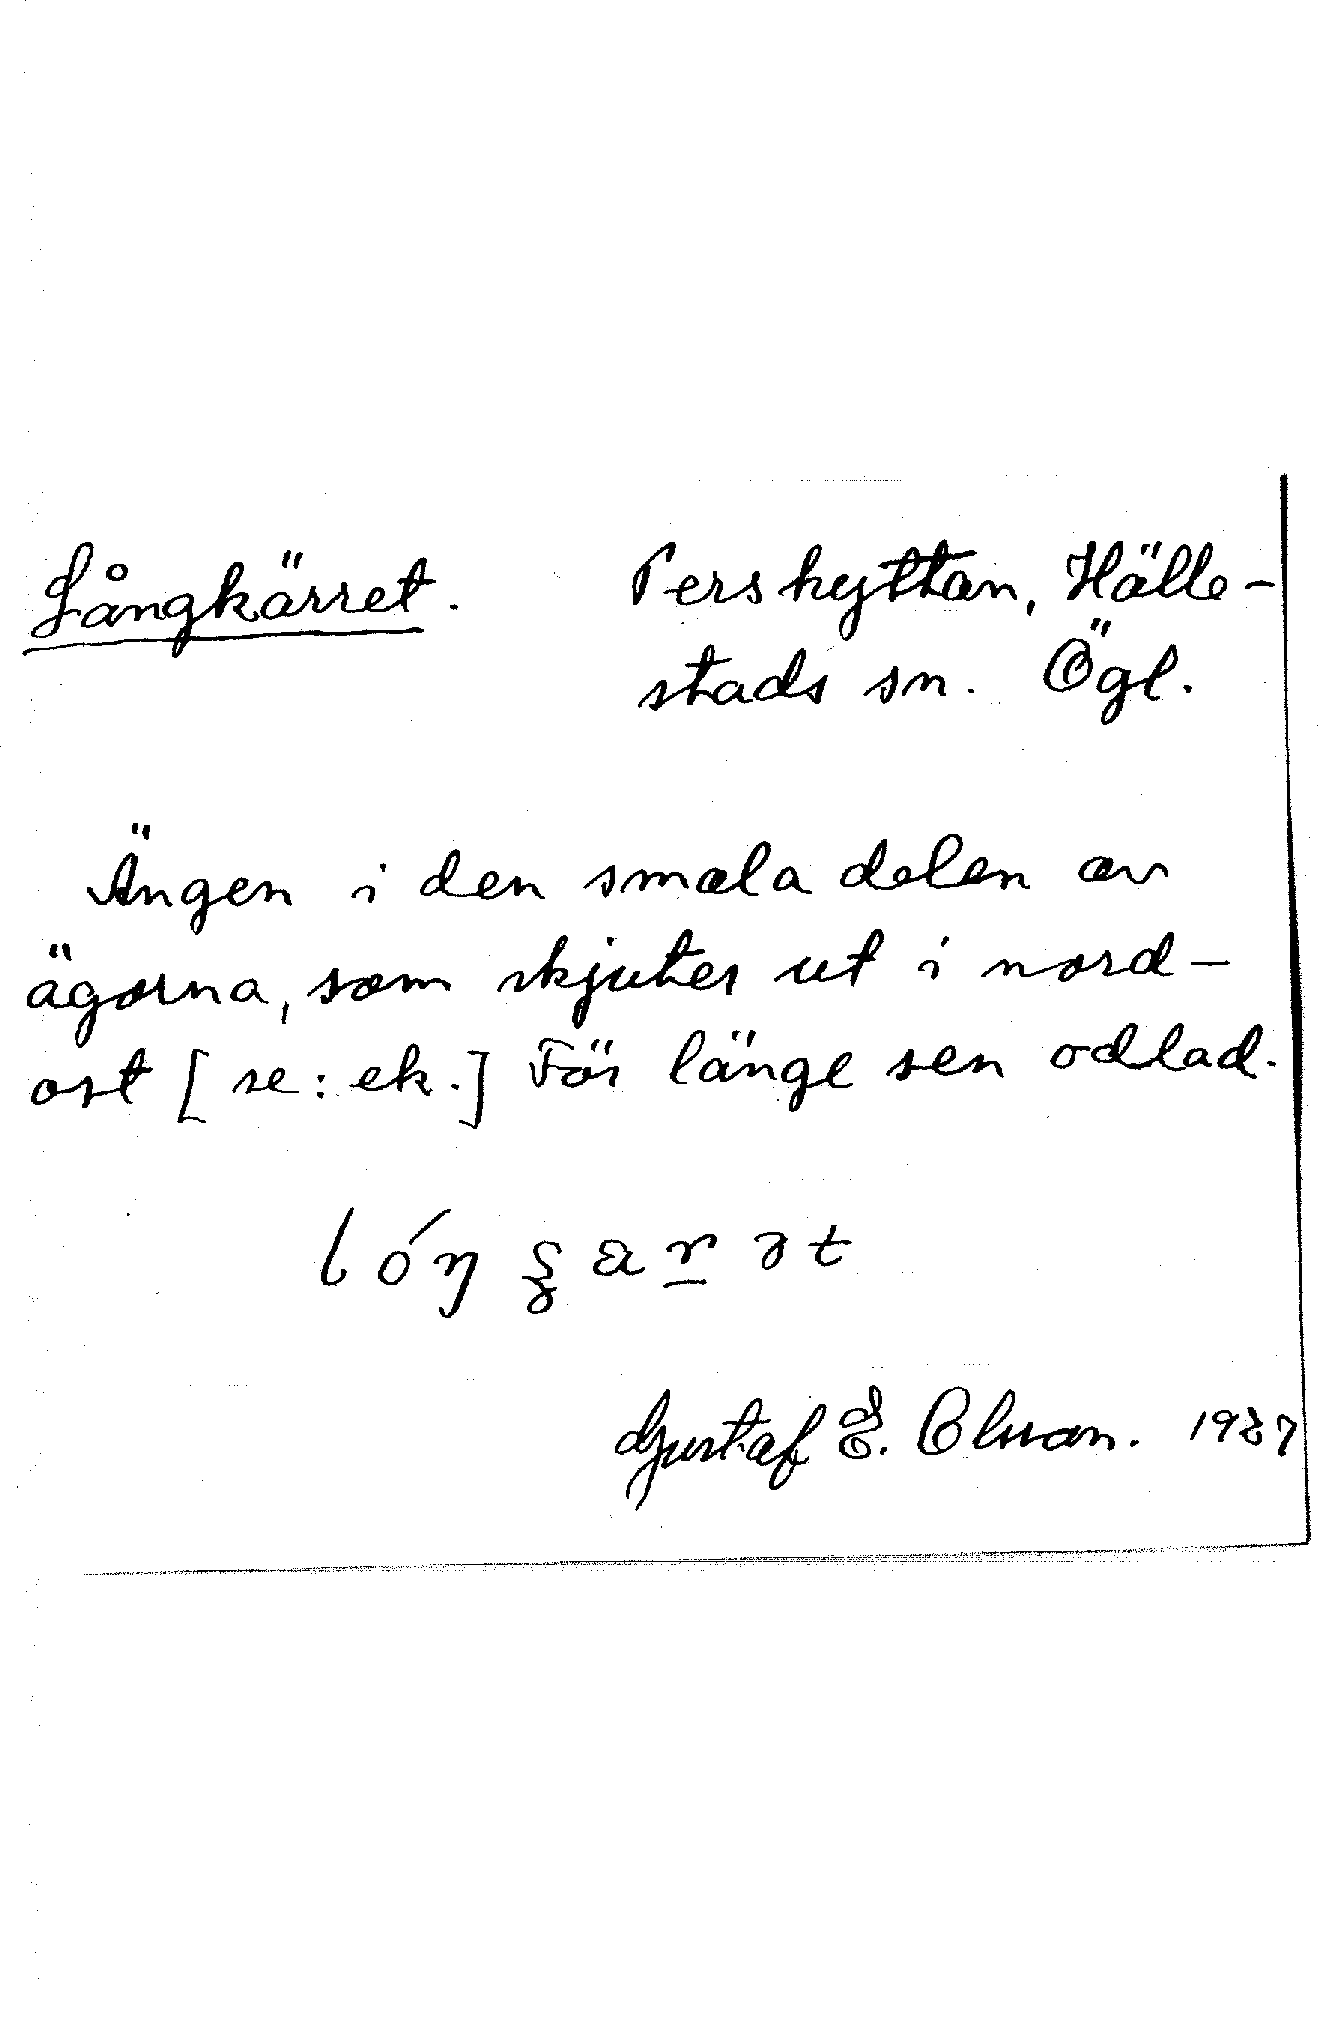 Långkärret. Pershyttan, Hälle-
stads sn. Ögl.
Ängen i den smala delen av
ägorna, som skjuter ut i nord-
ost [se: ek.] För länge sen odlad.
Gustaf E. Olsson. 1937